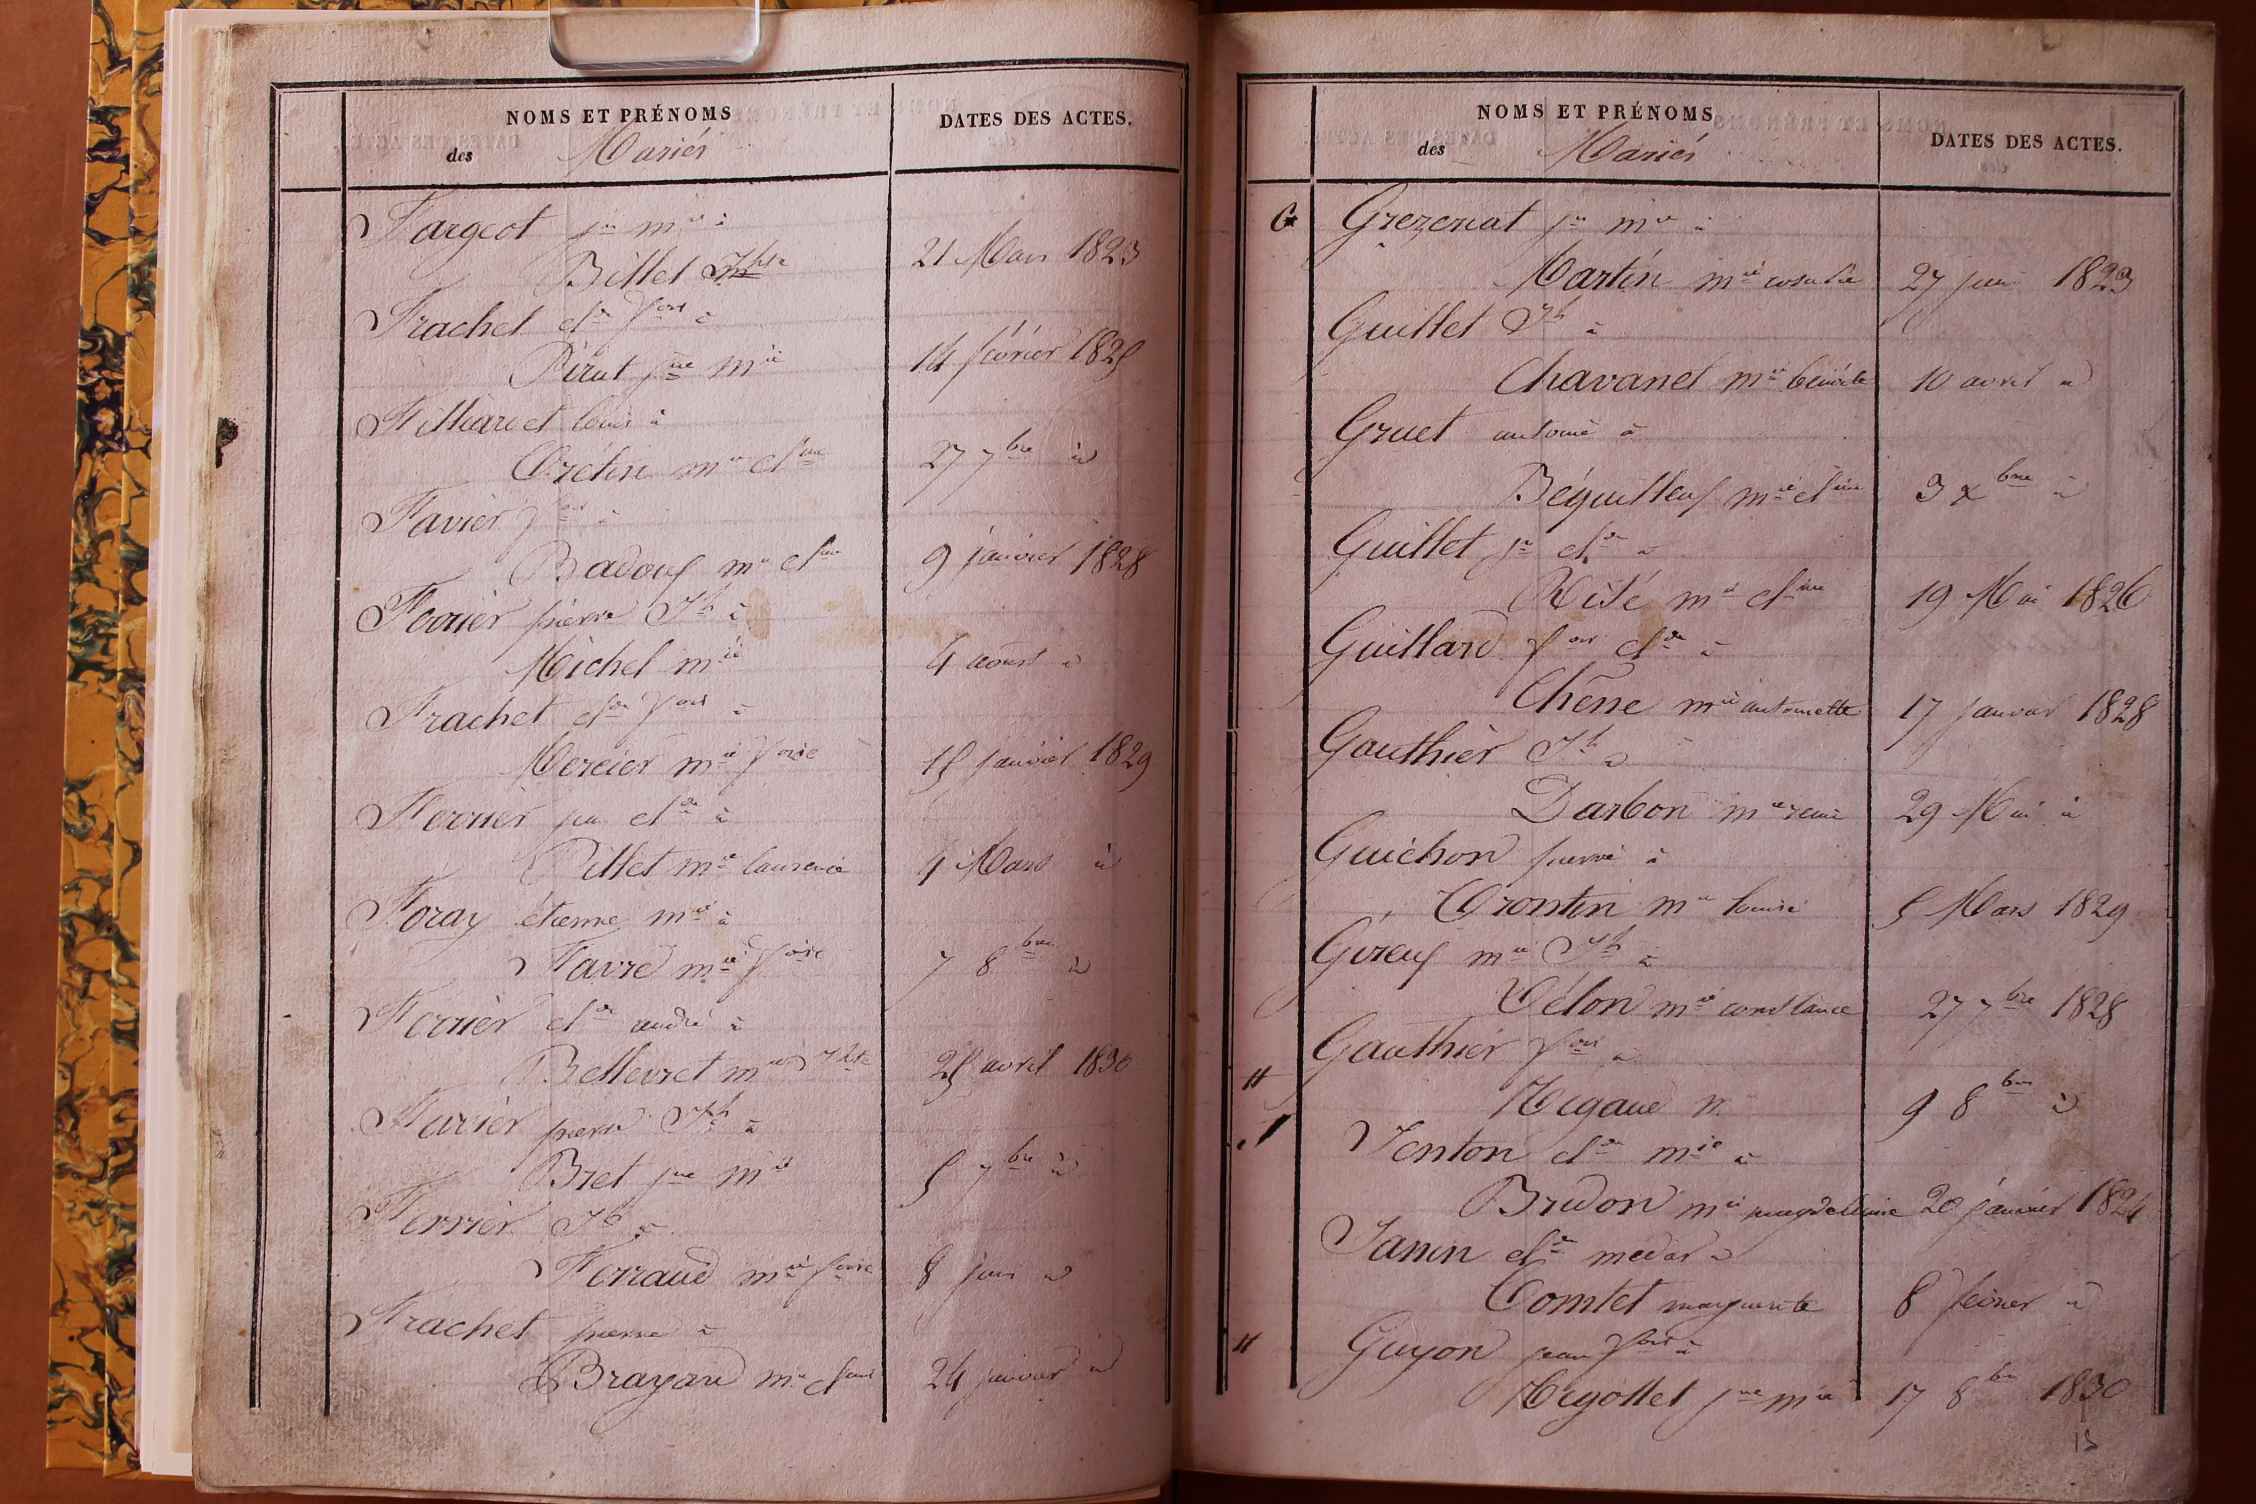 NOMS ET PRÉNOMS
des Mariés
DATES DES ACTES.
Fargeot jn mie à
Billet Jhte 21 Mars 1823
Frachet cl.de f.ois à
Pirat j.ne m.ie 14 février 1825
Filliaret louis à
Crétin m.ie cl.ine 27 7.bre id
Favier f.ois à
Badouf m.ie cl.ine 9 janvier 1828
Ferrier pierre J.h à
Michel m.ie 4 aoust id
Frachet cl.de f.ois à
Mercier m.ie f.oise 15 janvier 1829
Ferrier jn cl.de à
Pillet m.ie laurence 4 Mars id
Foray étienne m.ie à
Favre m.ie f.oise 7 8.bre id
Ferrier cl.de andré à
Bellevret m.ie Jhte 25 avril 1830
Furier pierre J.ph à
Bret j.ne m.ie 5 7.bre id
Ferrier J.h à
Ferraud m.ie f.oise 8 juin id
Frachet pierre à
Brayard m.ie cl.ine 24 janvier id
NOMS ET PRÉNOMS
des Mariés
DATES DES ACTES.
G Grezenat jn mie à
Martin m.ie rosalie 27 juin 1823
Guillet J.h à
Chavanel m.ie benoite 10 avril id
Gruet antoine à
Béguilleuf m.ie cl.ine 3 x.bre id
Guillet jn cl.de à
Rité m.ie cl.ine 19 Mai 1826
Guillard f.ois cl.de à
Chêne m.ie antoinette 17 janvier 1828
Gauthier J.h à
Darbon m.ie reine 29 Mai id
Guichon pierre à
Crontin m.ie louise 5 Mars 1829
Gireuf m.ie J.h à
Vélon m.ie constance 27 7.bre 1828
Gauthier f.ois à
Megaud m. 9 8.bre id
J Jenton cl.de m.ie à
Bridon m.ie magdeleine 20 janvier 1824
Janin cl.de medar à
Comtet marguerite 8 février id
Guyon jean f.ois à
Megottet j.ne m.ie 17 8.bre 1830
13